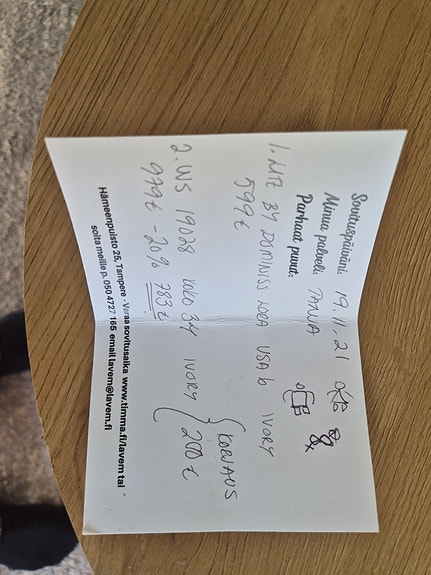 Sovituspäiväni: 19.11.21
Minua palveli: TANJA
Parhaat puvut:
1. MTE BY DOMINISS NORA USA 6 IVORY
599€
2. WS 19028 koko 34 IVORY
979€ -20% 783€
KORJAUS
200€
Hämeenpuisto 25, Tampere - Varaa sovitusaika www.timma.fi/lavem tai
soita meille p. 050 4727 165 email lavem@lavem.fi